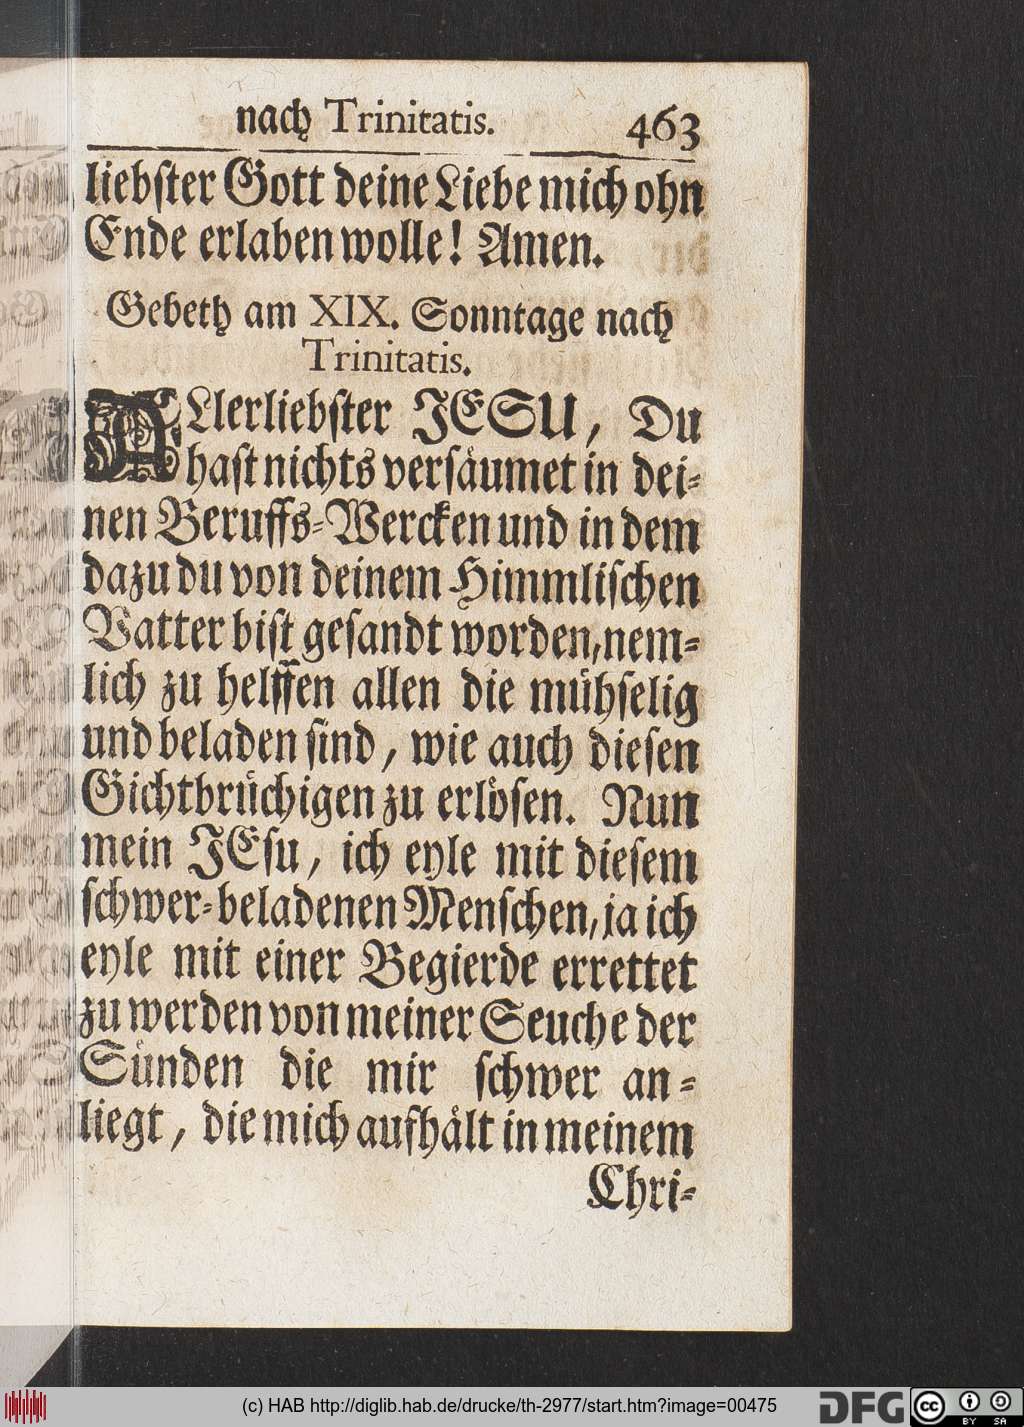 nach Trinitatis. 463
liebſter Gott deine Liebe mich ohn
Ende erlaben wolle! Amen.
Gebeth am XIX. Sonntage nach
Trinitatis.
ALlerliebſter JESU, Du
haſt nichts verſaͤumet in dei-
nen Beruffs-Wercken und in dem
dazu du von deinem Himmliſchen
Vatter biſt geſandt worden, nem-
lich zu helffen allen die muͤhſelig
und beladen ſind, wie auch dieſen
Gichtbruͤchigen zu erloͤſen. Nun
mein JEſu, ich eyle mit dieſem
ſchwer-beladenen Menſchen, ja ich
eyle mit einer Begierde errettet
zu werden von meiner Seuche der
Suͤnden die mir ſchwer an-
liegt, die mich aufhaͤlt in meinem
Chri-
(c) HAB http://diglib.hab.de/drucke/th-2977/start.htm?image=00475
DFG
cc BY SA